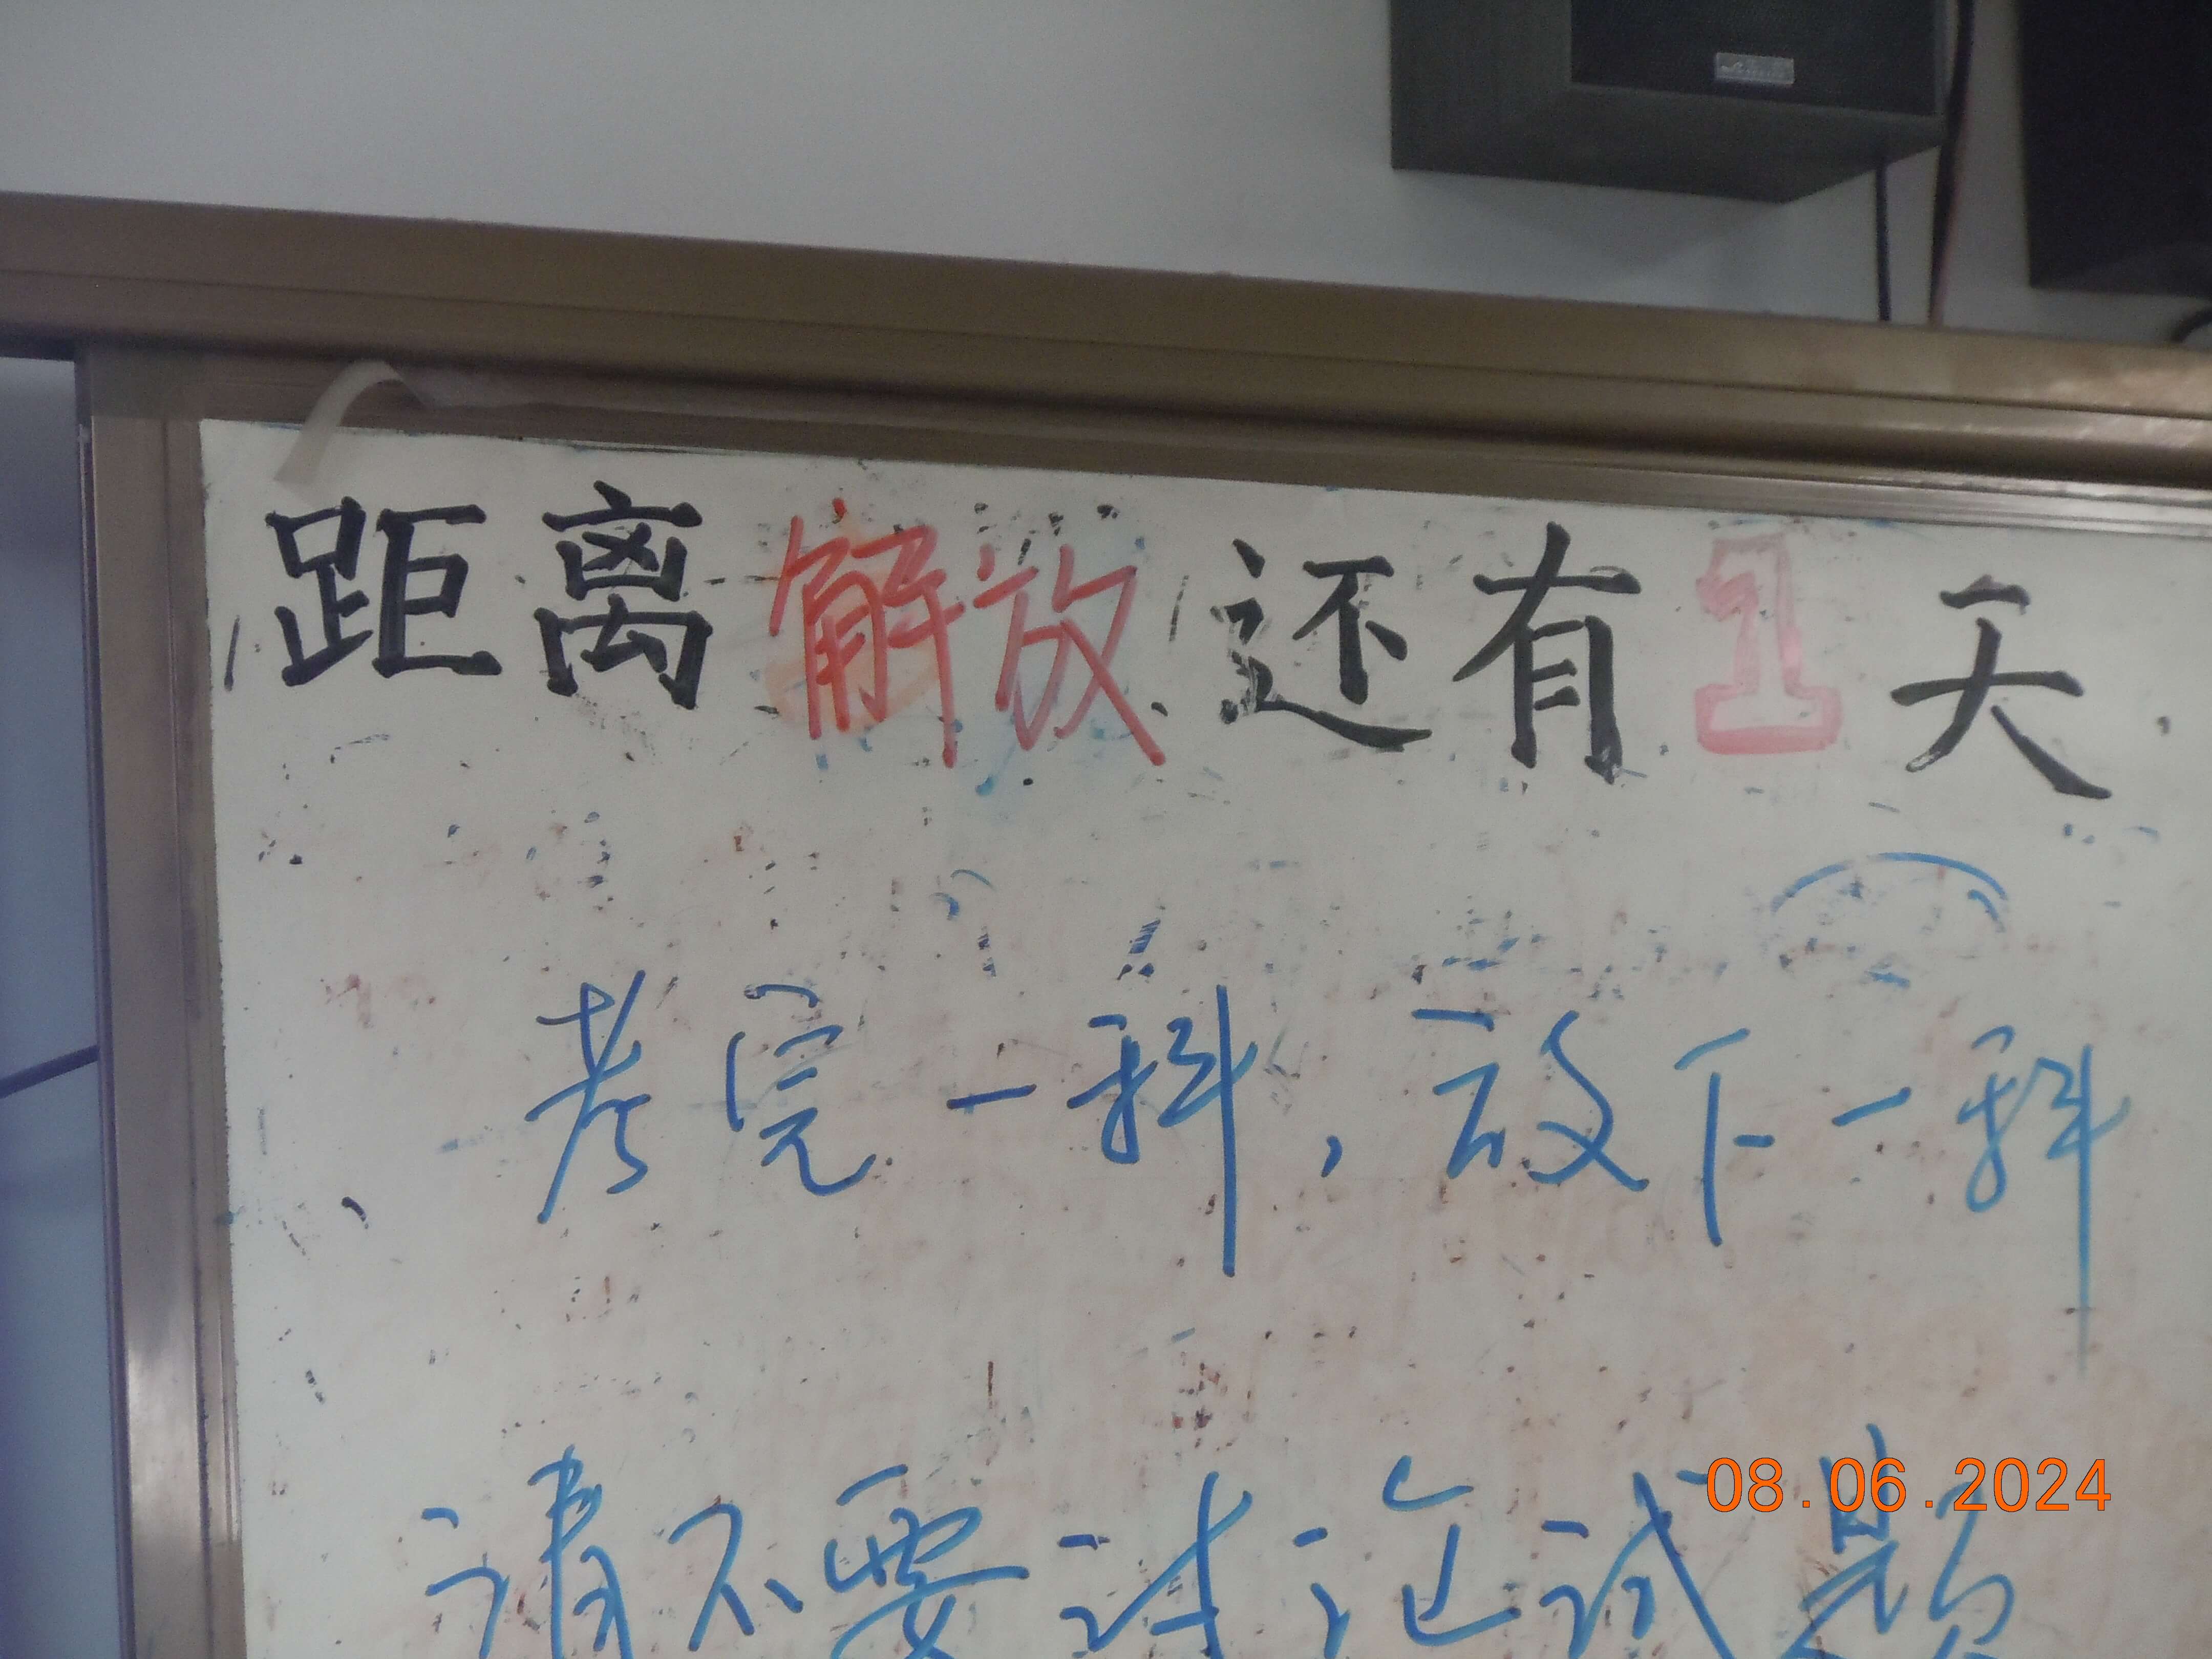 距离解放还有1天
考完一科，放下一科
请不要讨论试题
08.06.2024